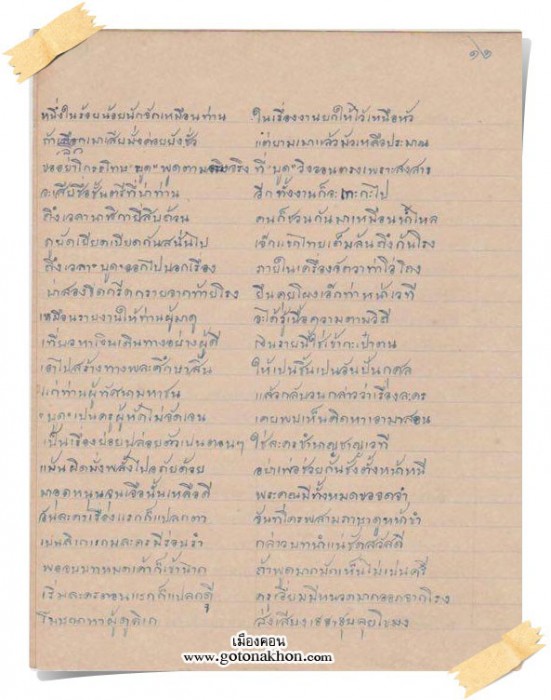 ๑๒
หนึ่งในร้อยน้อยนักจักเหมือนท่าน ในเรื่องงานยกให้ไว้เหนือหัว
ถ้าเลือกเมาเสียมั่งค่อยยังชั่ว แต่ยามเมาแล้วมัวเหลือประมาณ
ขออย่าโกรธโทษ "บูด" พูดตามจริง ที่ "บูด" วิงวอนตรงเพราะสงสาร
จะเสียชื่อชั้นตรีที่ท่าน อีกทั้งงานก็จะเกะกะไป
ถึงเวลานาฬิกายี่สิบถ้วน คนก็ชวนกันมาเหมือนน้ำไหล
ดูยัดเยียดเบียดกันสนั่นไป เจ็กแขกไทยเต็มล้นถึงก้นโรง
ถึงเวลา "บูด" ออกไปนอกเรื่อง ภายในเครื่อง
ยืนคุยโผงเอ็กท่าหน้าเวที
เหมือนรายงานให้ท่านผู้มาดู จะได้รู้เนื้อความตามวิถี
เที่ยวหาเงินเดินทางอย่างผู้ดี เงินรายนี้ใช่เข้ากะเป๋าตน
เอาไปสร้างทางพละศึกษาสิ้น ให้เป็นชิ้นเป็นอันปันกุศล
แก่ท่านผู้ทัศนามหาชน แล้วกลับวนกล่าวว่าเรื่องละคร
"บูด" เป็นครูผู้หัดไม่จัดเจน เคยพบเห็นคิดหาเอามาสอน
เป็นเรื่องย่อยปล่อยตัวเป็นตอนๆ ใช่ละครชำนาญชาญเวที
แม้นผิดมั่งพลั้งไปอภัยด้วย อย่าเพ่อช่วยกันชังตั้งหน้าหนี
มาอุดหนุนจุนเจือนั้นเหลือดี พระคุณมีทั้งหมดขอจดจำ
ละครเรื่องแรกก็แปลกตา
เป็นลิเกแกมละครมีร่อนรำ กล่าวบทนำแน่ชัดสวัสดี
พอจบบทหมดเค้าก็เข้าฉาก
เริ่มละครตอนแรกก็แปลกดี ครูเอี่ยมมีหนวดมากออกจากโรง
ส่งเสียง
เมืองคอน
www.gotonakhon.com